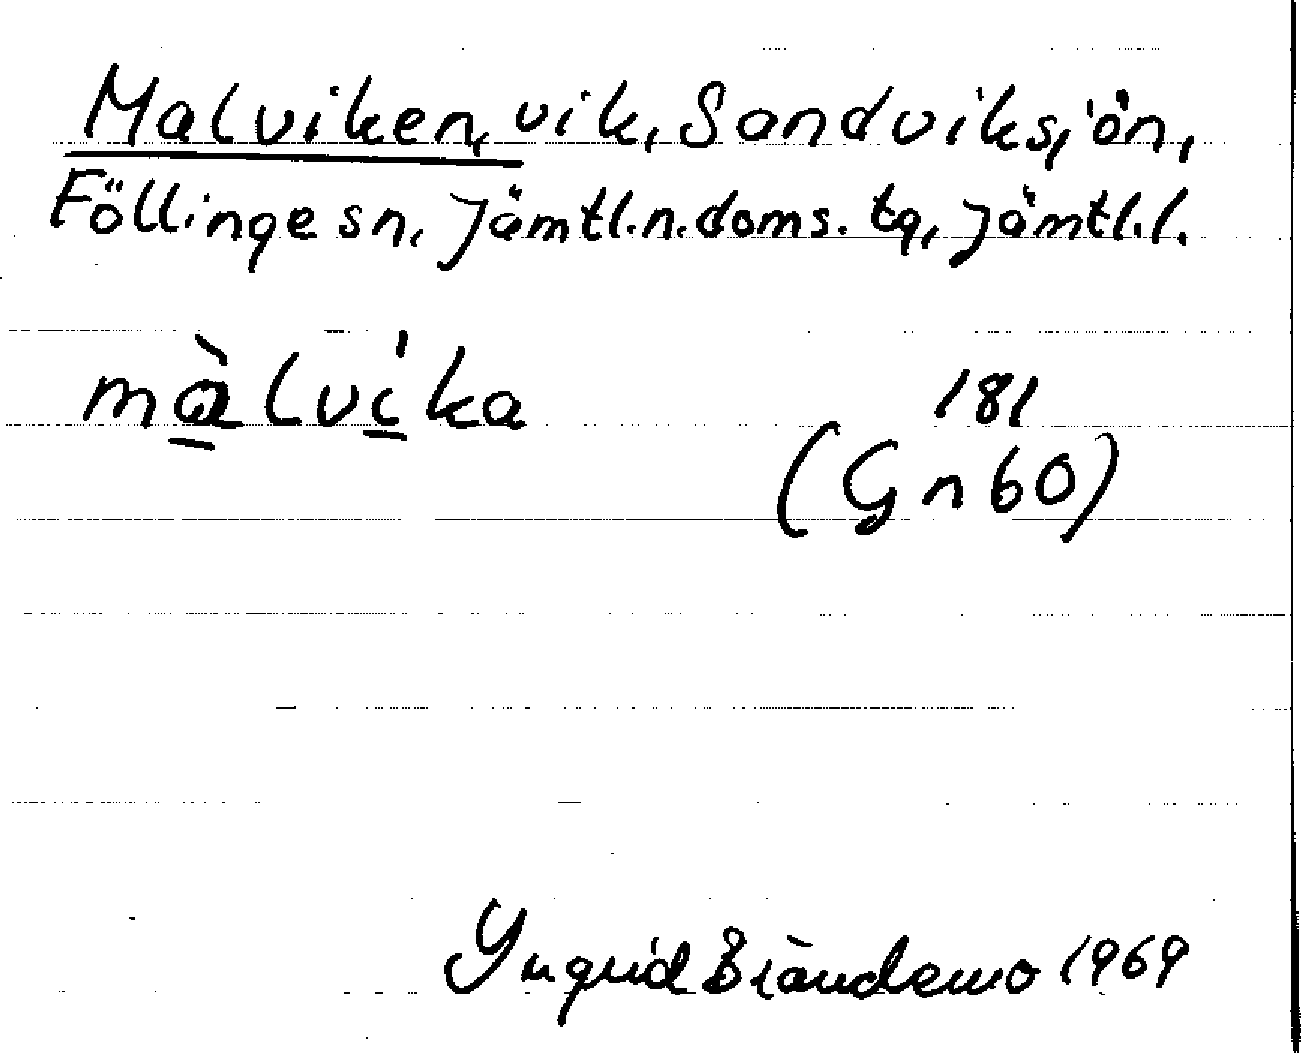 Malviken, vik, Sandviksjön,
Föllinge sn, Jämtl.n.doms. tg, Jämtl.l.
màlvíka 181
(Gn 60)
Yngrid Brändemo 1969